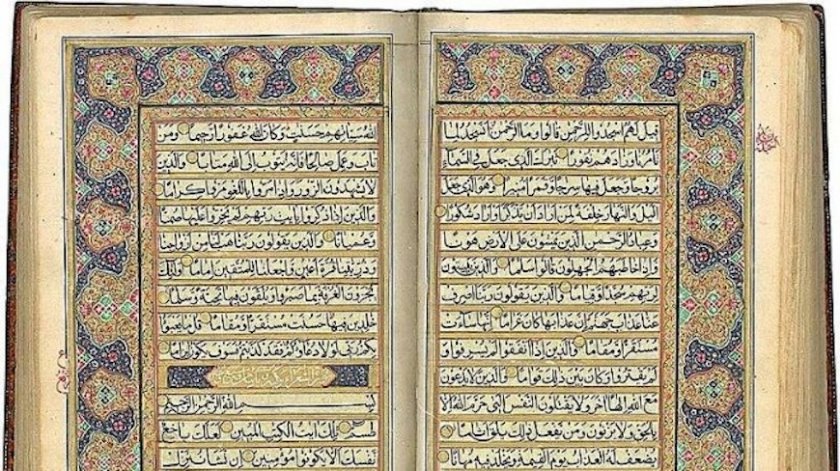 قيل لهم اسجدوا للرحمن قالوا وما الرحمن أنسجد لما
تأمرنا وزادهم نفورا تبرك الذي جعل في السماء
بروجا وجعل فيها سرجا وقمرا منيرا وهو الذي جعل
الليل والنهار خلفة لمن أراد أن يذكر أو أراد شكورا
وعباد الرحمن الذين يمشون على الأرض هونا
وإذا خاطبهم الجهلون قالوا سلما والذين يبيتون
لربهم سجدا وقياما والذين يقولون ربنا اصرف
عنا عذاب جهنم إن عذابها كان غراما إنها ساءت
مستقرا ومقاما والذين إذا أنفقوا لم يسرفوا و
لم يقتروا وكان بين ذلك قواما والذين لا يدعون
مع الله إلها آخر ولا يقتلون النفس التي حرم الله إلا
بالحق ولا يزنون ومن يفعل ذلك يلق أثاما
يضعف له العذاب يوم القيمة ويخلد فيه مهانا
الله سيئاتهم حسنت وكان الله غفورا رحيما ومن
تاب وعمل صالحا فإنه يتوب إلى الله متابا والذين
لا يشهدون الزور وإذا مروا باللغو مروا كراما
والذين إذا ذكروا بايت ربهم لم يخروا عليها صما
وعميانا والذين يقولون ربنا هب لنا من أزواجنا
وذريتنا قرة أعين واجعلنا للمتقين إماما أولئك
يجزون الغرفة بما صبروا ويلقون فيها تحية وسلما
خلدين فيها حسنت مستقرا ومقاما قل ما يعبؤا
بكم ربي لولا دعاؤكم فقد كذبتم فسوف يكون لزاما
بسم الله الرحمن الرحيم
طسم تلك ايت الكتب المبين لعلك باخع
نفسك ألا يكونوا مؤمنين إن نشأ ننزل